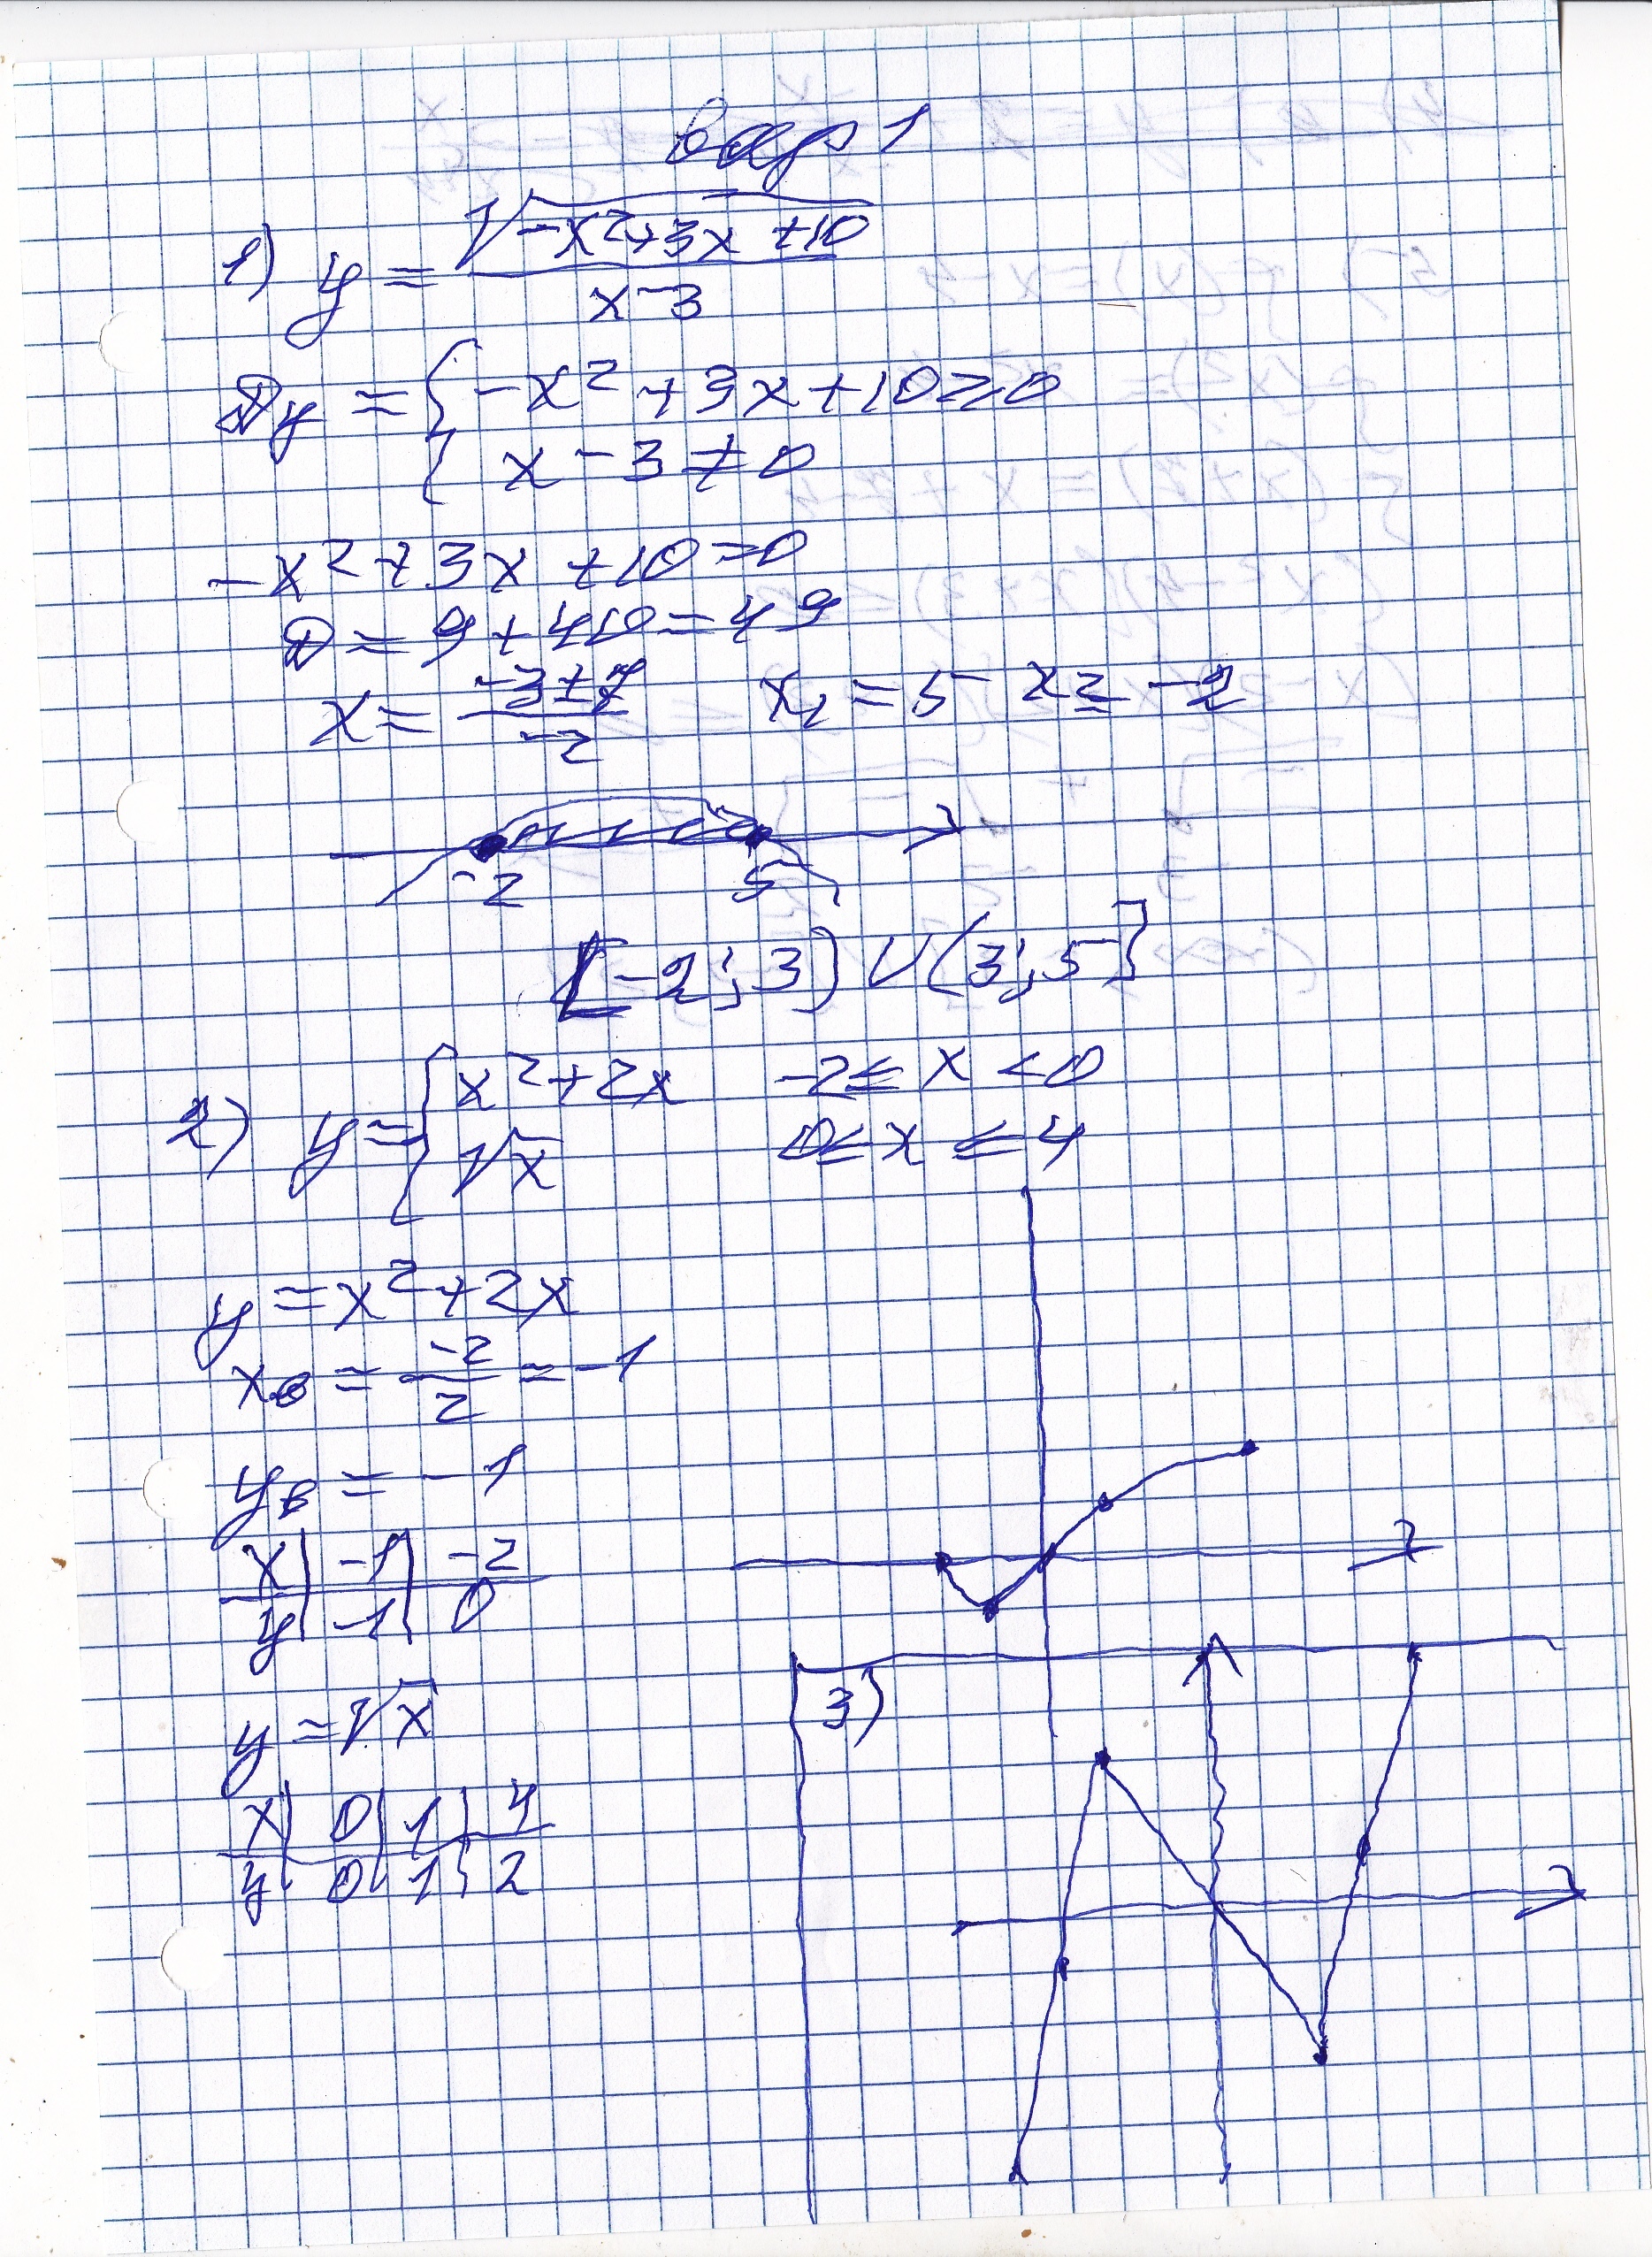 вар 1
1) y = √(-x²+3x+10) / (x-3)
Dy = { -x²+3x+10≥0
{ x-3≠0
-x²+3x+10=0
D=9+40=49
x = (-3±7)/(-2) x₁=5 x₂=-2
-2 5
[-2; 3) ∪ (3; 5]
2) y = { x²+2x -2≤x<0
{ √x 0≤x≤4
y=x²+2x
xв = -2/2 = -1
yв = -1
x | -1 | -2
y | -1 | 0
y=√x
x | 0 | 1 | 4
y | 0 | 1 | 2
3)